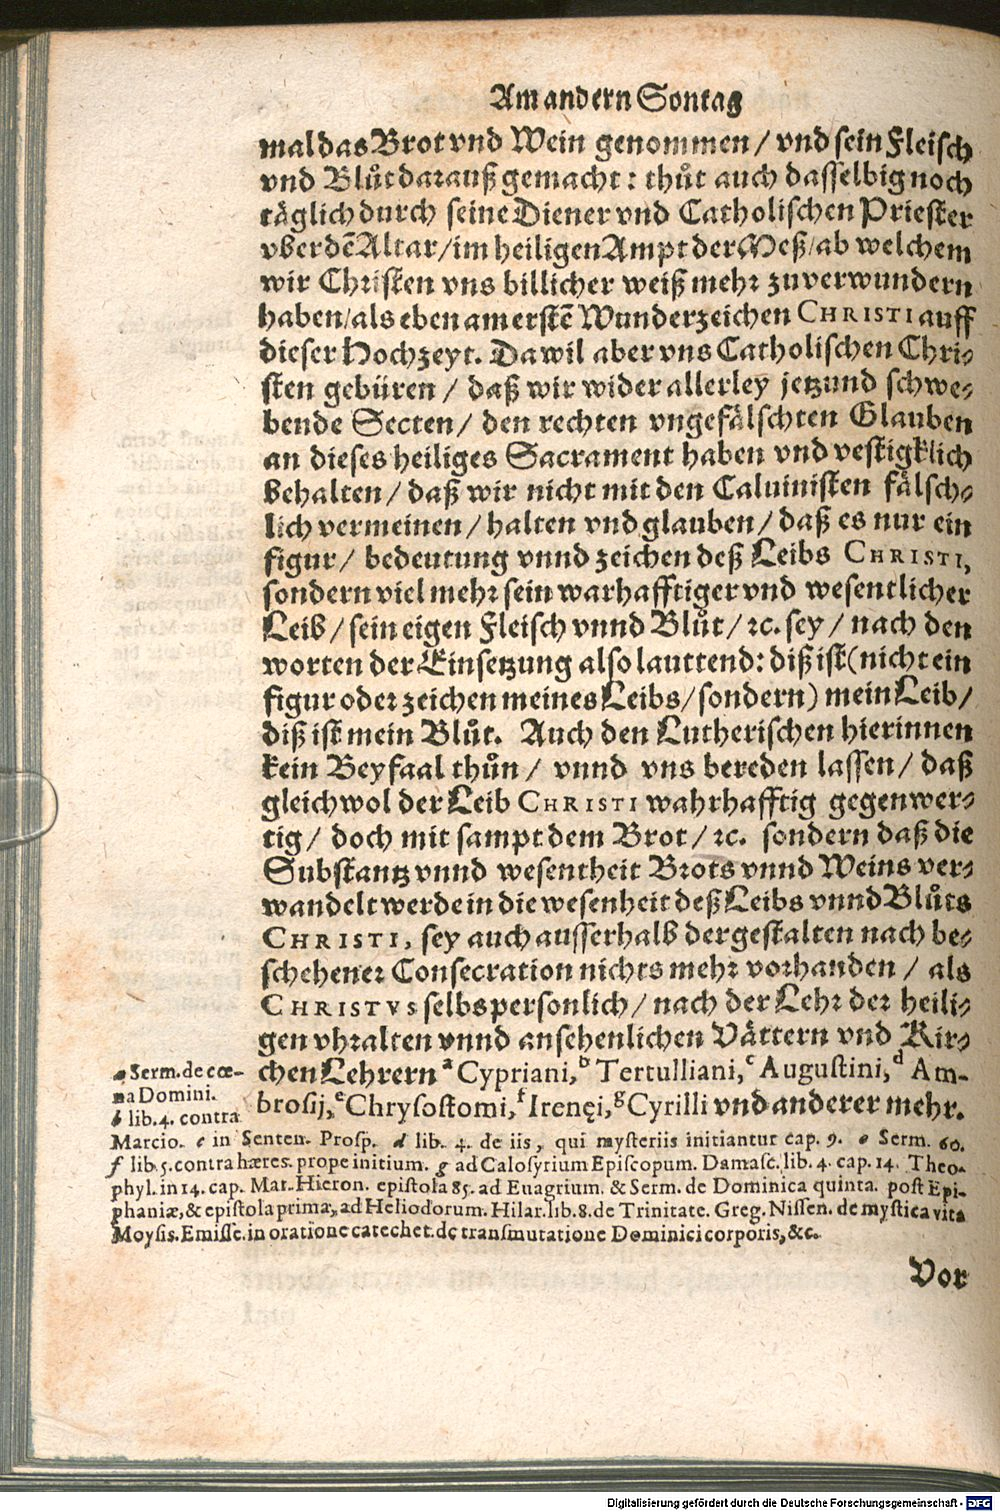 Am andern Sontag
mal das Brot vnd Wein genommen / vnd sein Fleisch
vnd Blůt darauß gemacht: thůt auch dasselbig noch
täglich durch seine Diener vnd Catholischen Priester
vber dē Altar/ im heiligen Ampt der Meß/ ab welchem
wir Christen vns billicher weiß mehr zuverwundern
haben/ als eben am erstē Wunderzeichen CHRISTI auff
dieser Hochzeyt. Da wil aber vns Catholischen Chri-
sten gebüren / daß wir wider allerley jetzund schwe-
bende Secten/ den rechten vngefälschten Glauben
an dieses heiliges Sacrament haben vnd vestigklich
behalten / daß wir nicht mit den Caluinisten fälsch-
lich vermeinen / halten vnd glauben / daß es nur ein
figur / bedeutung vnnd zeichen deß Leibs CHRISTI,
sondern viel mehr sein warhafftiger vnd wesentlicher
Leib / sein eigen Fleisch vnnd Blůt / ꝛc. sey / nach den
worten der Einsetzung also lauttend: diß ist (nicht ein
figur oder zeichen meines Leibs / sondern) mein Leib /
diß ist mein Blůt. Auch den Lutherischen hierinnen
kein Beyfaal thůn / vnnd vns bereden lassen / daß
gleichwol der Leib CHRISTI wahrhafftig gegenwer-
tig / doch mit sampt dem Brot / ꝛc. sondern daß die
Substantz vnnd wesentheit Brots vnnd Weins ver-
wandelt werde in die wesenheit deß Leibs vnnd Blůts
CHRISTI, sey auch ausserhalb dergestalten nach be-
schehener Consecration nichts mehr vorhanden / als
CHRISTVS selbs personlich / nach der Lehr der heili-
gen vhralten vnnd ansehenlichen Vättern vnd Kir-
chen Lehrern ᵃ Cypriani, ᵇ Tertulliani, ᶜ Augustini, ᵈ Am-
brosij, ᵉ Chrysostomi, ᶠ Irenęi, ᵍ Cyrilli vnd anderer mehr.
a Serm. de cœ-
na Domini.
b lib. 4. contra
Marcio. c in Senten. Prosp. d lib. 4. de iis, qui mysteriis initiantur cap. 9. e Serm. 60.
f lib. 5. contra hæres. prope initium. g ad Calosyrium Episcopum. Damasc. lib. 4. cap. 14. Theo-
phyl. in 14. cap. Mar. Hieron. epistola 85. ad Euagrium. & Serm. de Dominica quinta. post Epi-
phaniæ, & epistola prima, ad Heliodorum. Hilar. lib. 8. de Trinitate. Greg. Nissen. de mystica vita
Moysis. Emisse. in oratione catechet. de transmutatione Dominici corporis, &c.
Vor
Digitalisierung gefördert durch die Deutsche Forschungsgemeinschaft - DFG